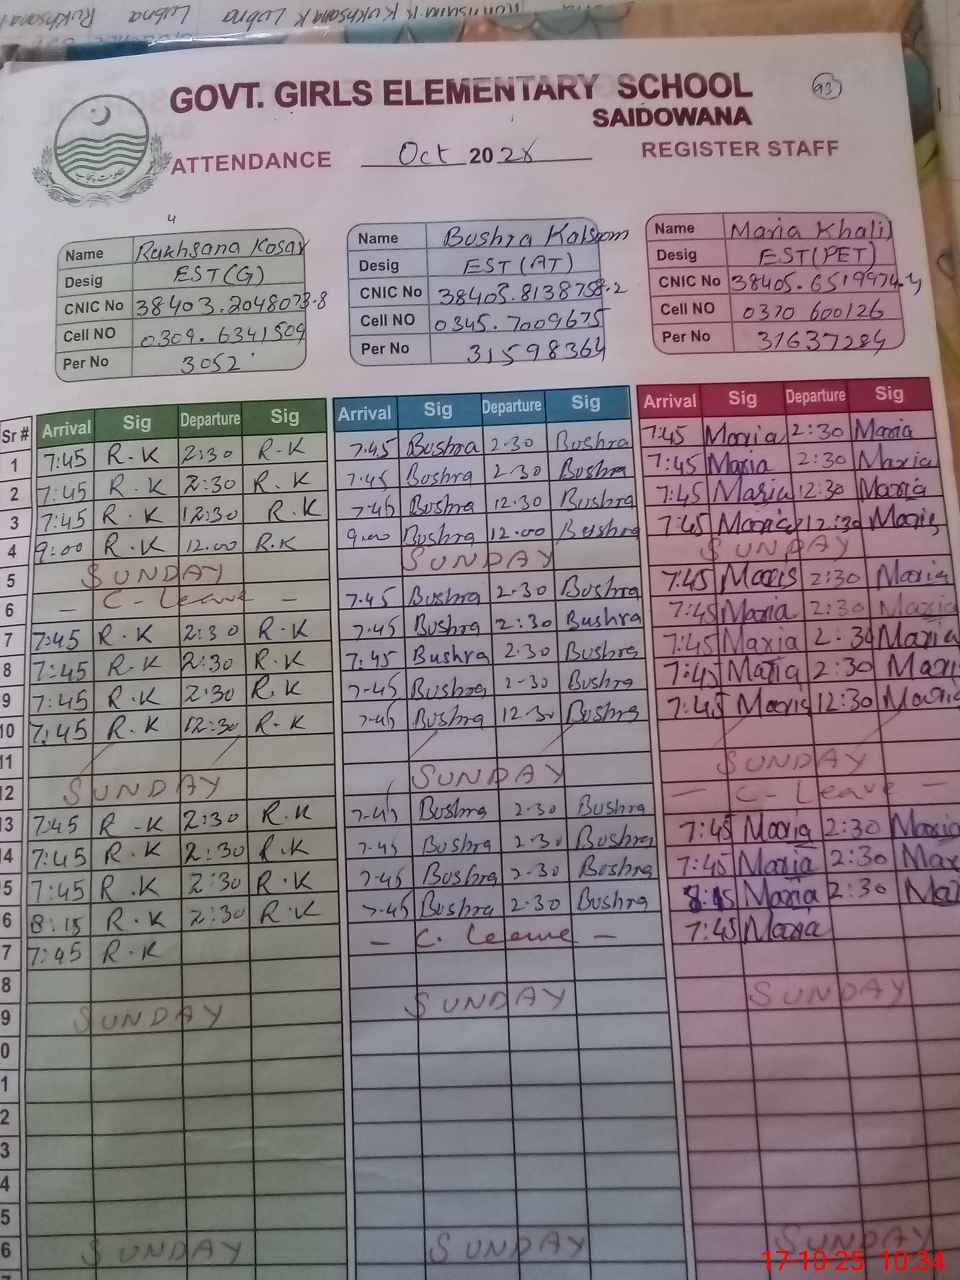 GOVT. GIRLS ELEMENTARY SCHOOL
93
SAIDOWANA
ATTENDANCE Oct 2025 REGISTER STAFF
حکومت پنجاب
Name Rukhsana Kosar
Desig EST(G)
CNIC No 38403.2048073-8
Cell NO 0309.6341509
Per No 3052
Name Bushra Kalsoom
Desig EST (AT)
CNIC No 38403.8138758-2
Cell NO 0345.7009675
Per No 31598364
Name Maria Khalil
Desig EST(PET)
CNIC No 38405.6519974-
Cell NO 0370 600126
Per No 31637284
Sr # Arrival Sig Departure Sig Arrival Sig Departure Sig Arrival Sig Departure Sig
1 7:45 R.K 2:30 R.K 7.45 Bushra 2.30 Bushra 7:45 Maria 2:30 Maria
2 7:45 R.K 2:30 R.K 7.45 Bushra 2.30 Bushra 7:45 Maria 2:30 Maria
3 7:45 R.K 12:30 R.K 7.45 Bushra 12.30 Bushra 7:45 Maria 12:30 Maria
4 9:00 R.K 12.00 R.K 9.00 Bushra 12.00 Bushra 7:45 Maria 12:30 Maria
5 SUNDAY SUNDAY SUNDAY
6 - C-Leave - 7.45 Bushra 2.30 Bushra 7:45 Maria 2:30 Maria
7 7:45 R.K 2:30 R.K 7.45 Bushra 2:30 Bushra 7:45 Maria 2:30 Maria
8 7:45 R.K 2:30 R.K 7:45 Bushra 2.30 Bushra 7:45 Maria 2.30 Maria
9 7:45 R.K 2:30 R.K 7.45 Bushra 2.30 Bushra 7:45 Maria 2:30 Maria
10 7:45 R.K 12:30 R.K 7.45 Bushra 12.30 Bushra 7:45 Maria 12:30 Maria
11
12 SUNDAY SUNDAY SUNDAY
13 7:45 R.K 2:30 R.K 7.45 Bushra 2.30 Bushra - C-Leave -
14 7:45 R.K 2:30 R.K 7.45 Bushra 2.30 Bushra 7:45 Maria 2:30 Maria
5 7:45 R.K 2:30 R.K 7.45 Bushra 2.30 Bushra 7:45 Maria 2:30 Mar
6 8:15 R.K 2:30 R.K 7.45 Bushra 2.30 Bushra 8:15 Maria 2:30 Mar
7 7:45 R.K - C. Leave - 7:45 Maria
8
9 SUNDAY SUNDAY SUNDAY
0
1
2
3
4
5
6 SUNDAY SUNDAY SUNDAY
17-10-25 10:34